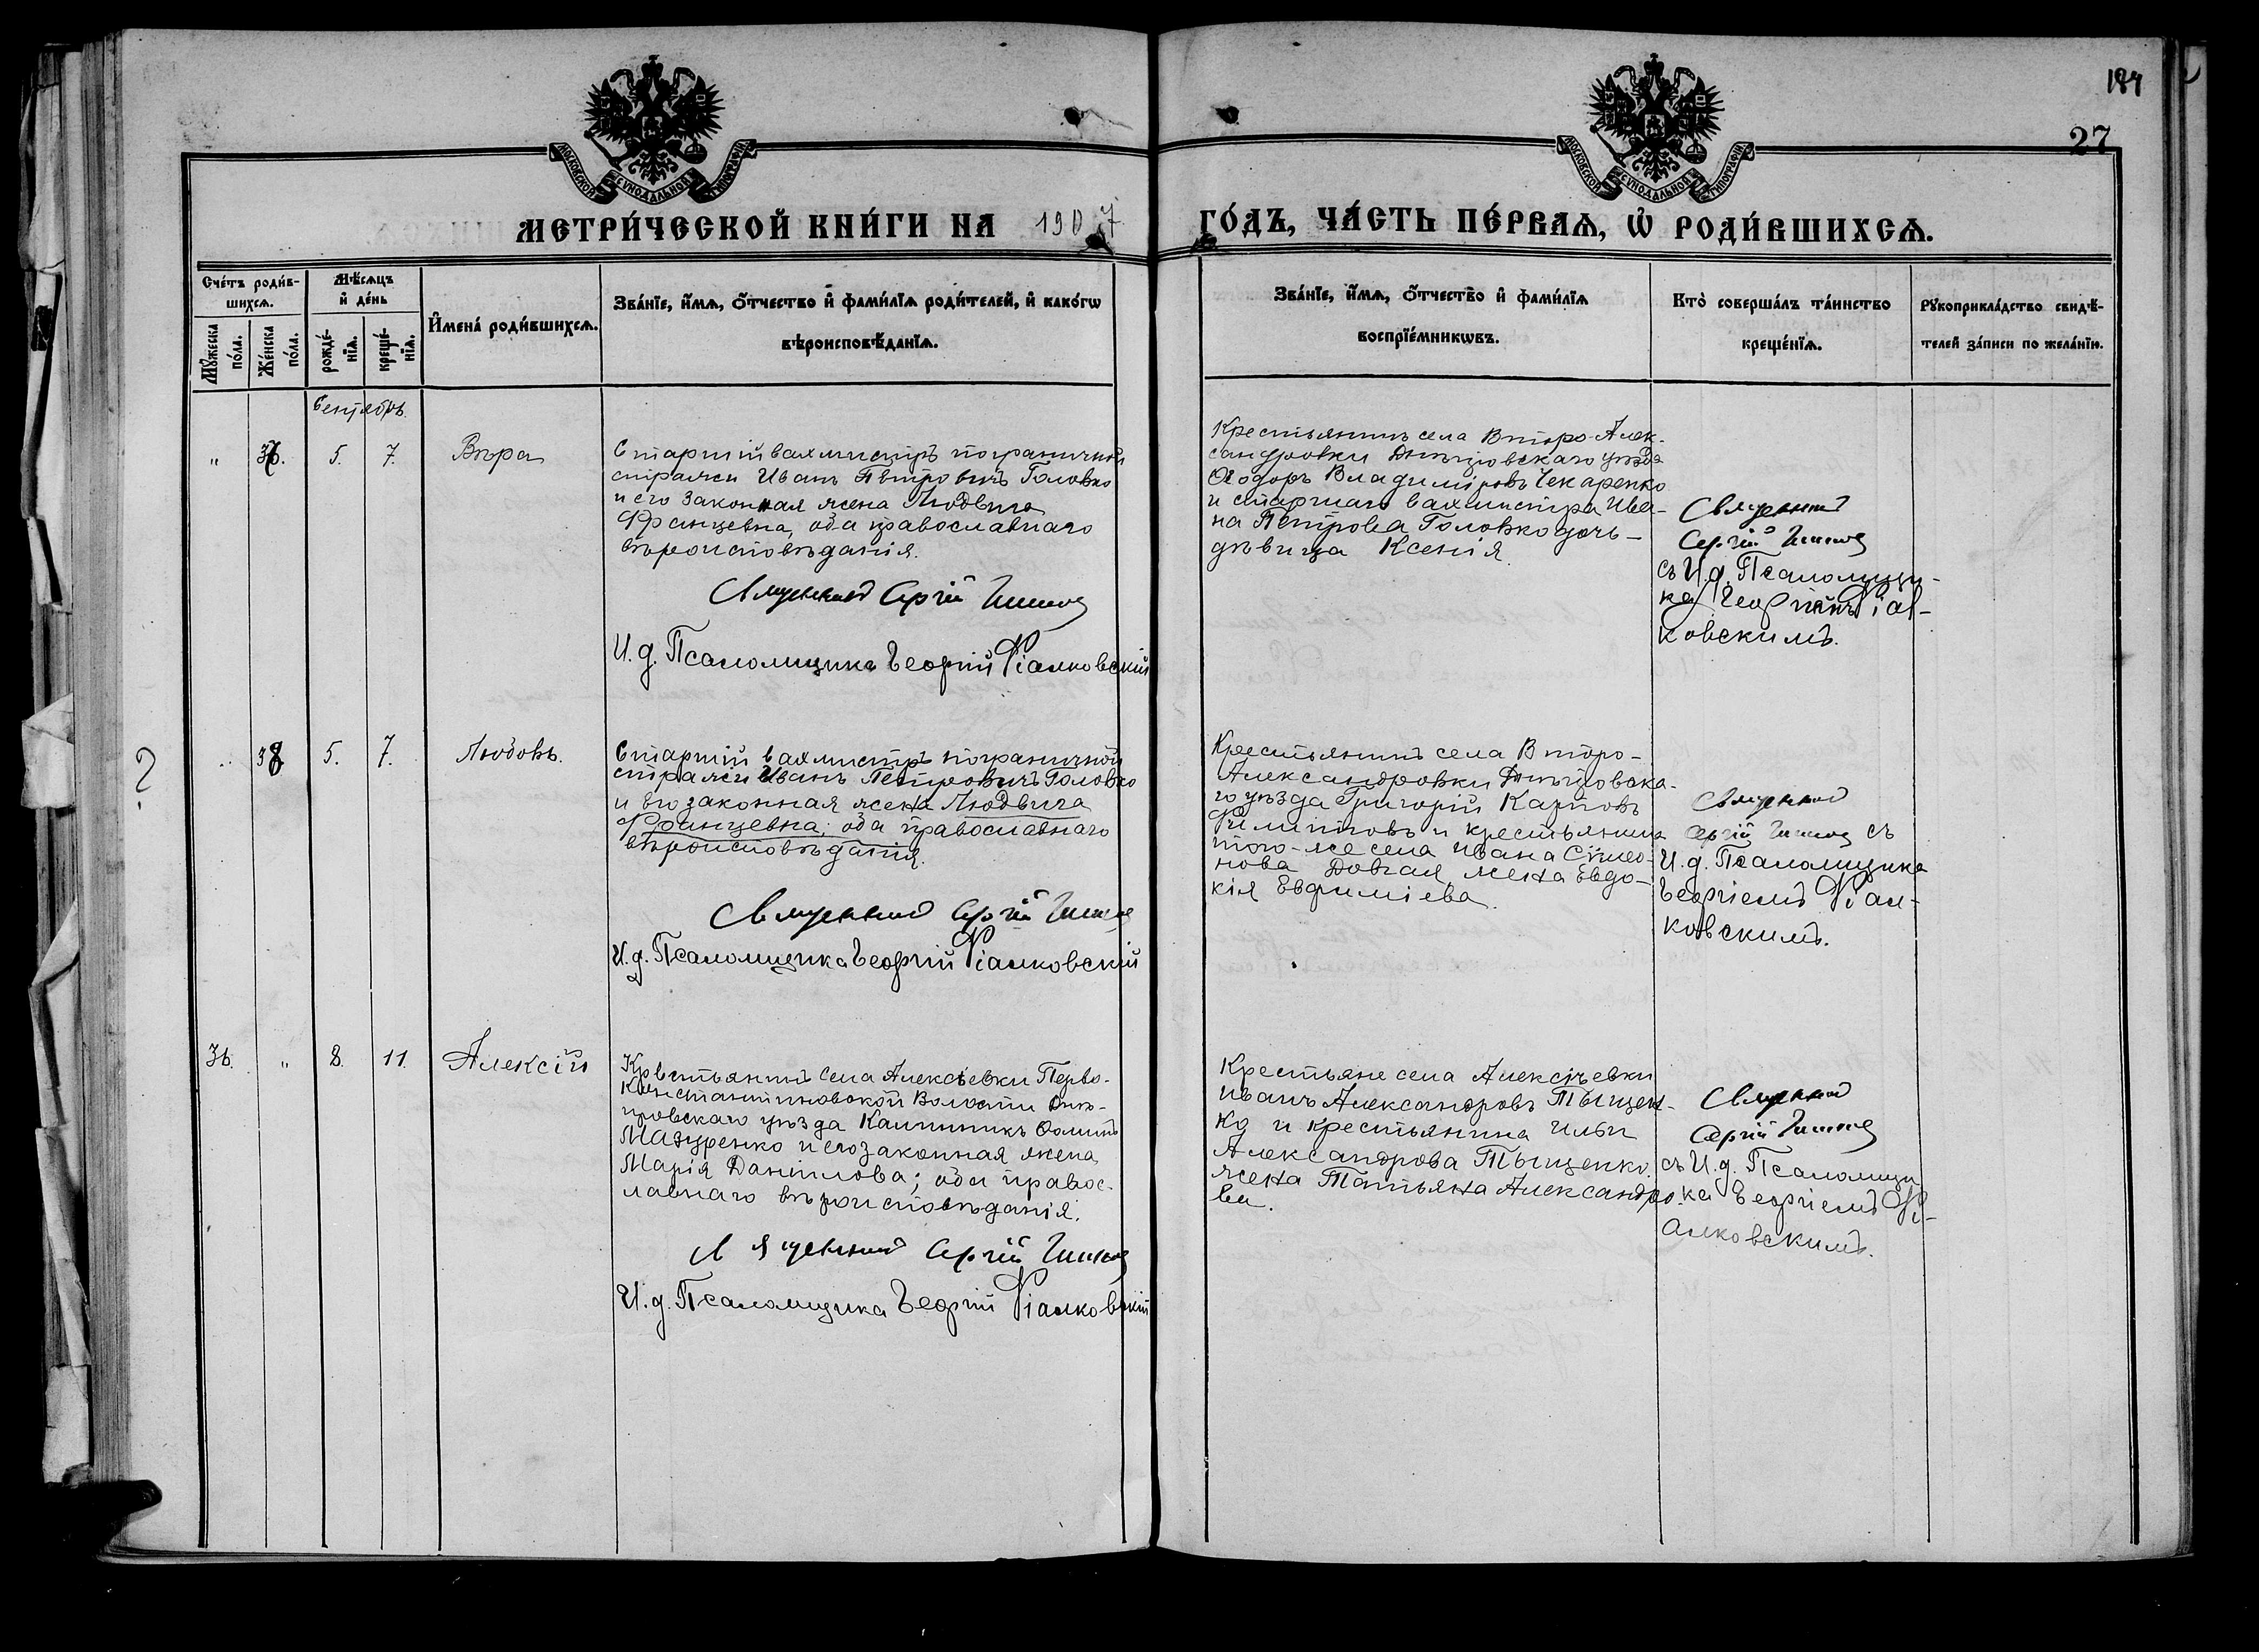 184
27
МОСКОВСКОЙ СѴНОДАЛЬНОЙ ТИПОГРАФІИ
МОСКОВСКОЙ СѴНОДАЛЬНОЙ ТИПОГРАФІИ
МЕТРИ́ЧЕСКОЙ КНИ́ГИ НА 1907
ГО́ДЪ, ЧА́СТЬ ПЕ́РВАѦ, Ѡ҆ РОДИ́ВШИХСѦ.
Сче́тъ роди́в-
шихсѧ.
Мѣ́сѧцъ
и҆ де́нь
И҆мена̀ роди́вшихсѧ.
Зва́нїе, и҆́мѧ, ѻ҆́тчество и҆ фами́лїѧ роди́телей, и҆ како́гѡ
вѣроисповѣ́данїѧ.
Мꙋ́жеска
по́ла.
Же́нска
по́ла.
рожде́-
нїѧ.
креще́-
нїѧ.
Зва́нїе, и҆́мѧ, ѻ҆́тчество и҆ фами́лїѧ
воспрїе́мникѡвъ.
Кто̀ соверша́лъ та́инство
креще́нїѧ.
Рꙋкоприкла́дство свидѣ́-
телей за́писи по жела́нїю.
Сентябрь.
" 37. 5. 7. Вѣра
Старшій вахмистръ пограничной
стражи Иванъ Петровичъ Головко
и его законная жена Людвига
Францевна, оба православнаго
вѣроисповѣданія.
Священникъ Сергій
И.д. Псаломщика Георгій Фіалковскій
Крестьянинъ села Второ-Алек-
сандровки Днѣпровскаго уѣзда
Ѳеодоръ Владиміровъ Чекаренко
и старшаго вахмистра Ива-
на Петрова Головко дочь-
дѣвица Ксенія.
Священникъ
Сергій
съ И.д. Псаломщи-
ка Георгіемъ Фіал-
ковскимъ.
?
" 38 5. 7. Любовь.
Старшій вахмистръ пограничной
стражи Иванъ Петровичъ Головко
и его законная жена Людвига
Францевна; оба православнаго
вѣроисповѣданія.
Священникъ Сергій
И.д. Псаломщика Георгій Фіалковскій
Крестьянинъ села Второ-
Александровки Днѣпровска-
го уѣзда Григорій Карповъ
Филипповъ и крестьянина
того-же села Ивана Сѵмео-
нова Довгая жена Евдо-
кія Евфиміева.
Священникъ
Сергій съ
И.д. Псаломщика
Георгіемъ Фіал-
ковскимъ.
36. " 8. 11. Алексій
Крестьянинъ села Алексѣевки Перво-
Константиновской Волости Днѣ-
провскаго уѣзда Калинникъ Ѳоминъ
Мазуренко и его законная жена
Марія Даніилова; оба правос-
лавнаго вѣроисповѣданія.
Священникъ Сергій
И.д. Псаломщика Георгій Фіалковскій
Крестьяне села Алексѣевки
Иванъ Александровъ Тыщен-
ко и крестьянина Ильи
Александрова Тыщенко
жена Татьяна Александро-
ва.
Священникъ
Сергій
съ И.д. Псаломщи-
ка Георгіемъ Фі-
алковскимъ.